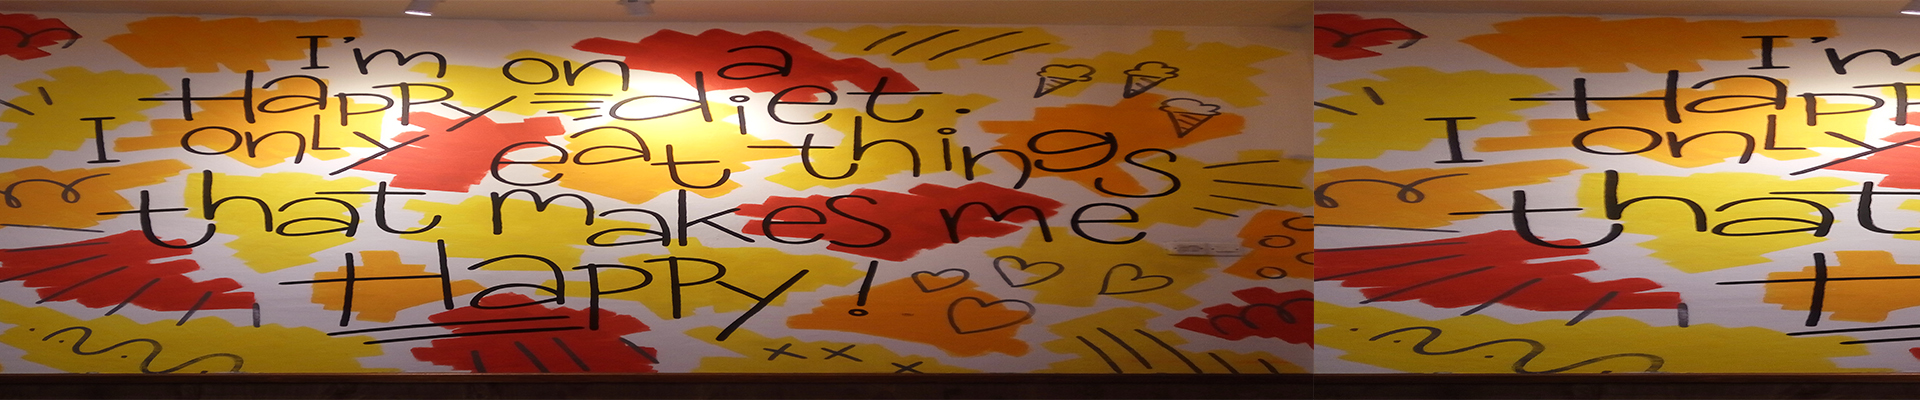 I'm on a
Happy diet.
I only eat things
that makes me
Happy!
I'm
Happ
I only
that